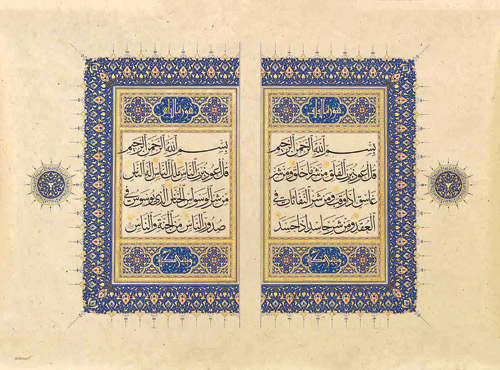 بِسْمِ اللَّهِ الرَّحْمَنِ الرَّحِيمِ
قُلْ أَعُوذُ بِرَبِّ الْفَلَقِ مِنْ شَرِّ مَا خَلَقَ وَمِنْ شَرِّ
غَاسِقٍ إِذَا وَقَبَ وَمِنْ شَرِّ النَّفَّاثَاتِ فِي
الْعُقَدِ وَمِنْ شَرِّ حَاسِدٍ إِذَا حَسَدَ
بِسْمِ اللَّهِ الرَّحْمَنِ الرَّحِيمِ
قُلْ أَعُوذُ بِرَبِّ النَّاسِ مَلِكِ النَّاسِ إِلَهِ النَّاسِ
مِنْ شَرِّ الْوَسْوَاسِ الْخَنَّاسِ الَّذِي يُوَسْوِسُ فِي
صُدُورِ النَّاسِ مِنَ الْجِنَّةِ وَالنَّاسِ